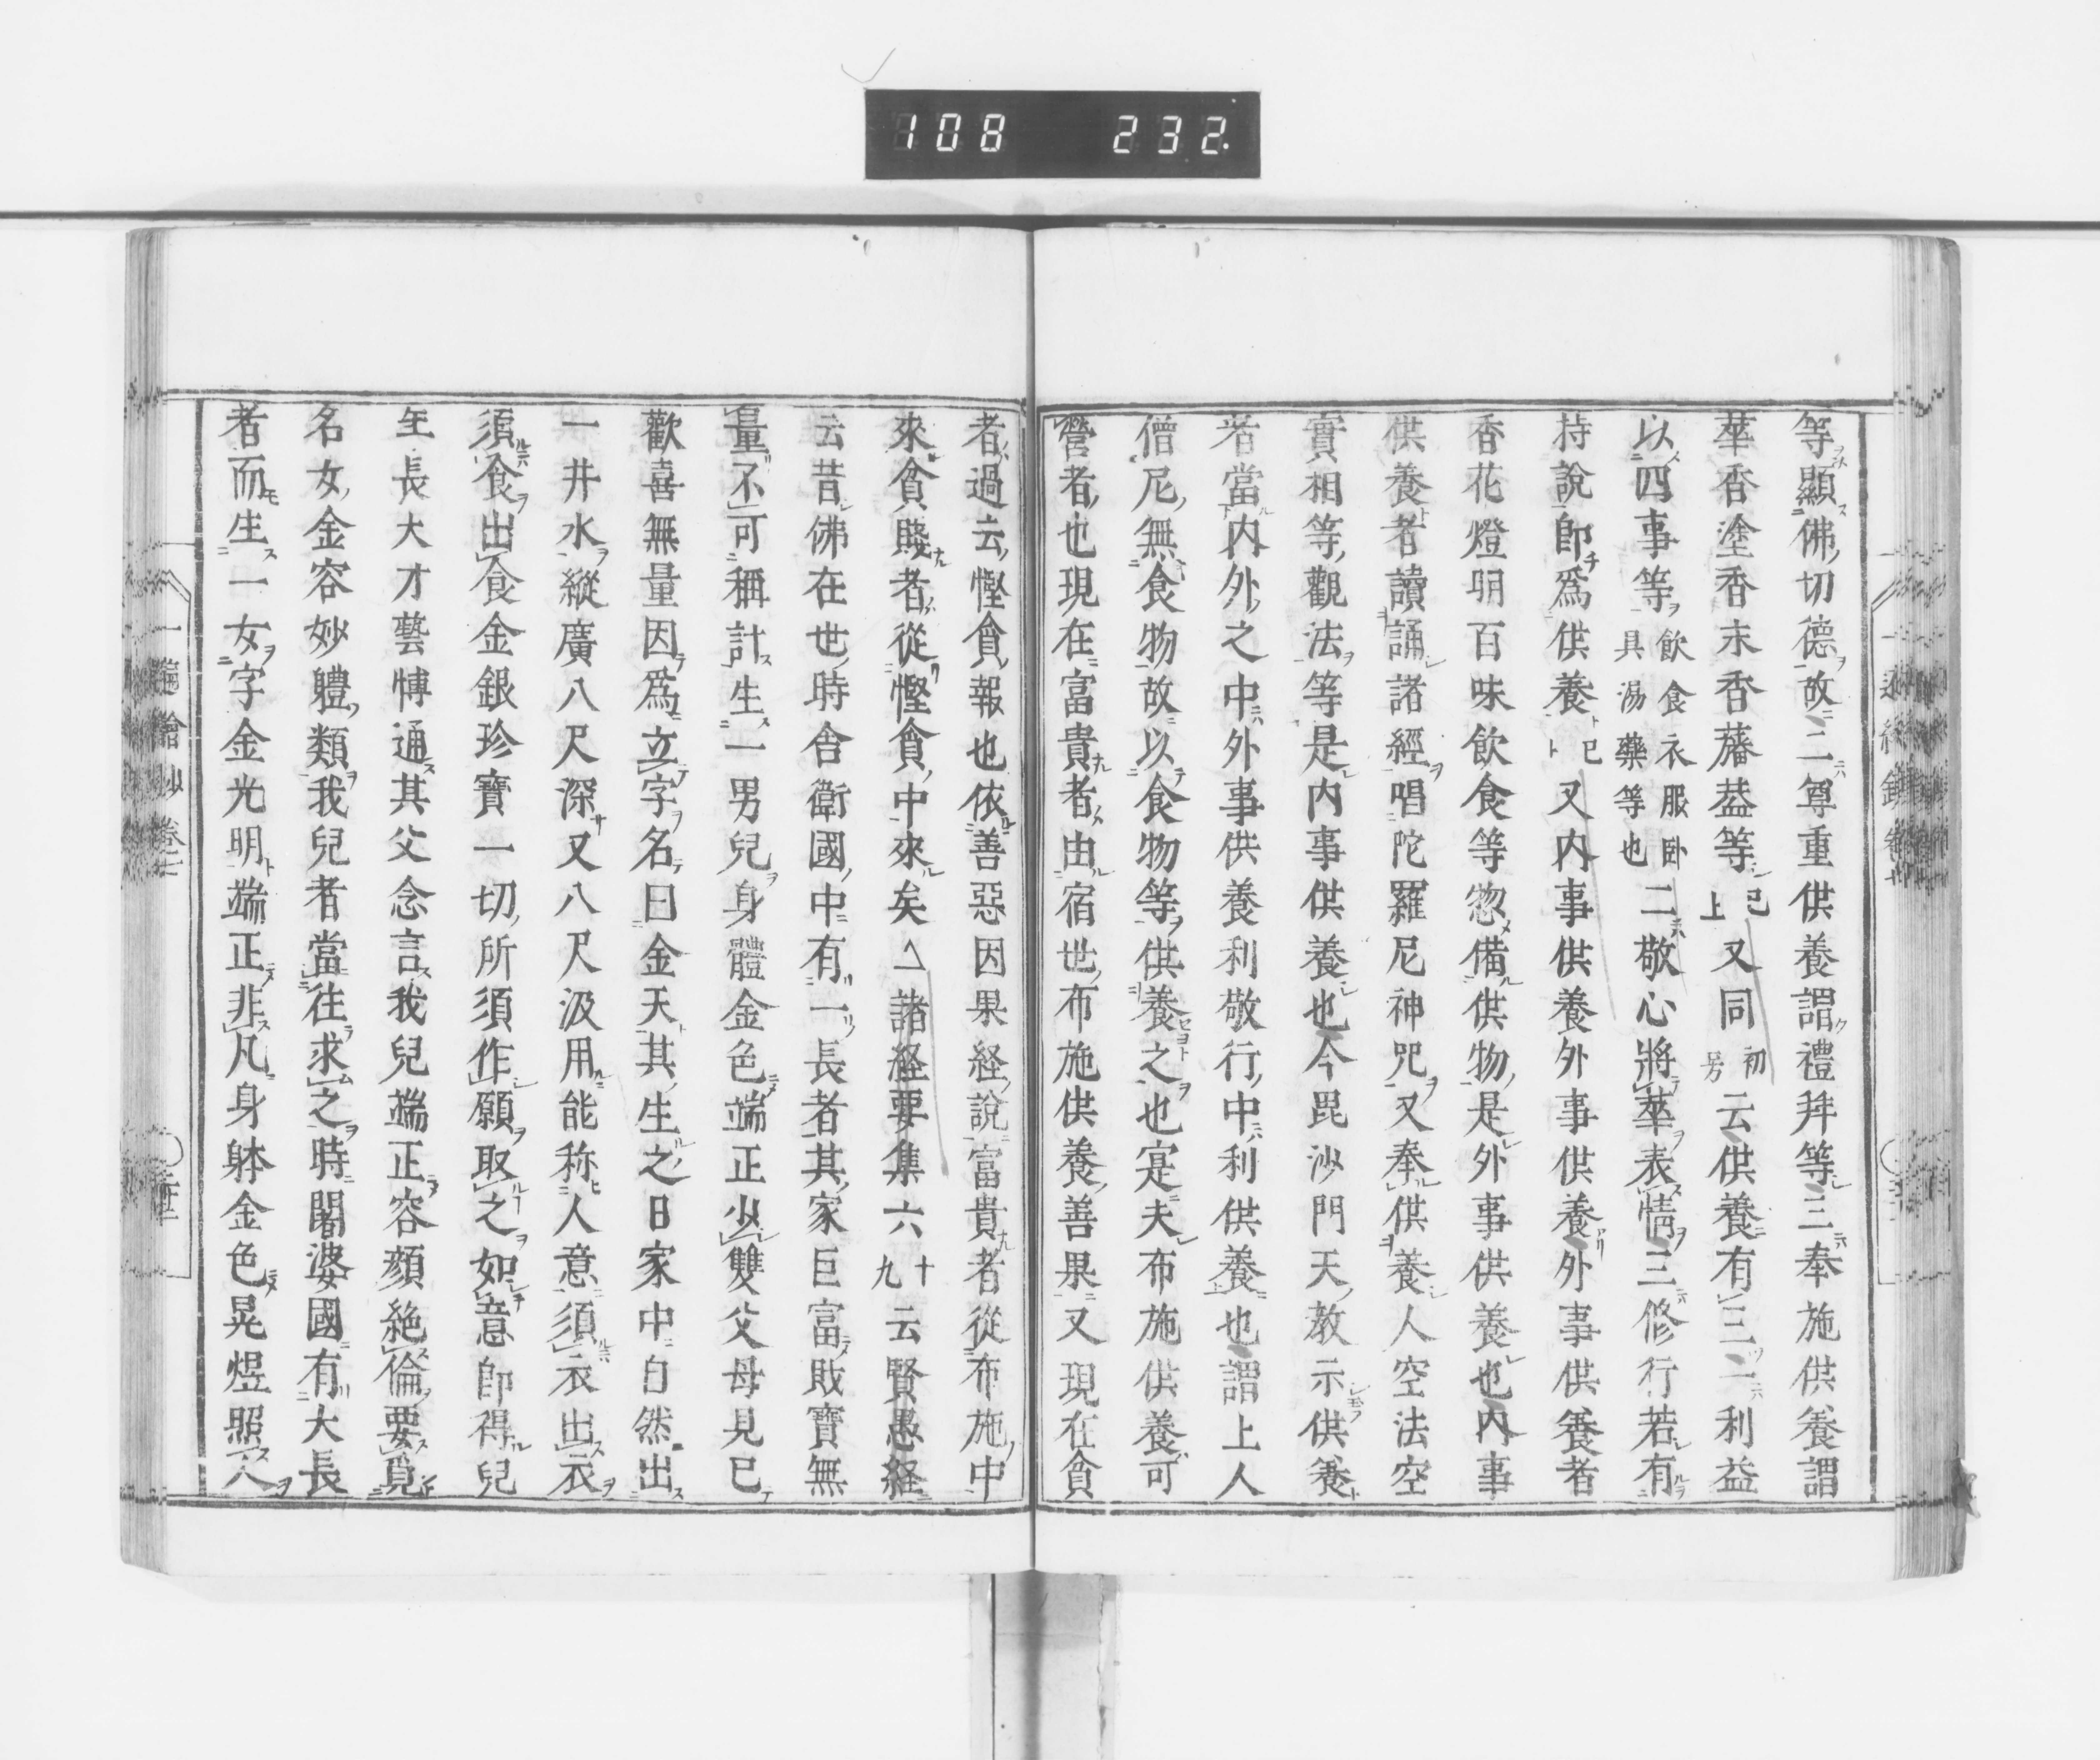 108 232
等顯佛切德故二尊重供養謂禮拜等三奉施供養謂
華香塗香末香旛葢等已上又同初云供養有三一利益
以四事等飲食衣服臥具湯藥等也二敬心將華表情三修行若有
持說即爲供養已又内事供養外事供養外事供養者
香花燈明百味飲食等惣備供物是外事供養也内事
供養者讀誦諸經唱陀羅尼神咒又奉供養人空法空
實相等觀法等是内事供養也今毘沙門天教示供養
者當内外之中外事供養利敬行中利供養也謂上人
僧尼無食物故以食物等供養之也寔夫布施供養可
營者也現在富貴者由宿世布施供養善果又現在貪
者過云慳貪報也依善惡因果経說富貴者從布施中
來貪賤者從慳貪中來矣△諸経要集六十九云賢愚経
云昔佛在世時舎衛國中有一長者其家巨富財寶無
量不可稱計生一男兒身體金色端正少雙父母見已
歡喜無量因爲立字名曰金天其生之日家中自然出
一井水縱廣八尺深又八尺汲用能称人意須衣出衣
須食出食金銀珍寶一切所須作願取之如意即得兒
年長大才藝博通其父念言我兒端正容顔絶倫要覓
名女金容妙體類我兒者當往求之時闍婆國有大長
者而生一女字金光明端正非凡身躰金色晃煜照人